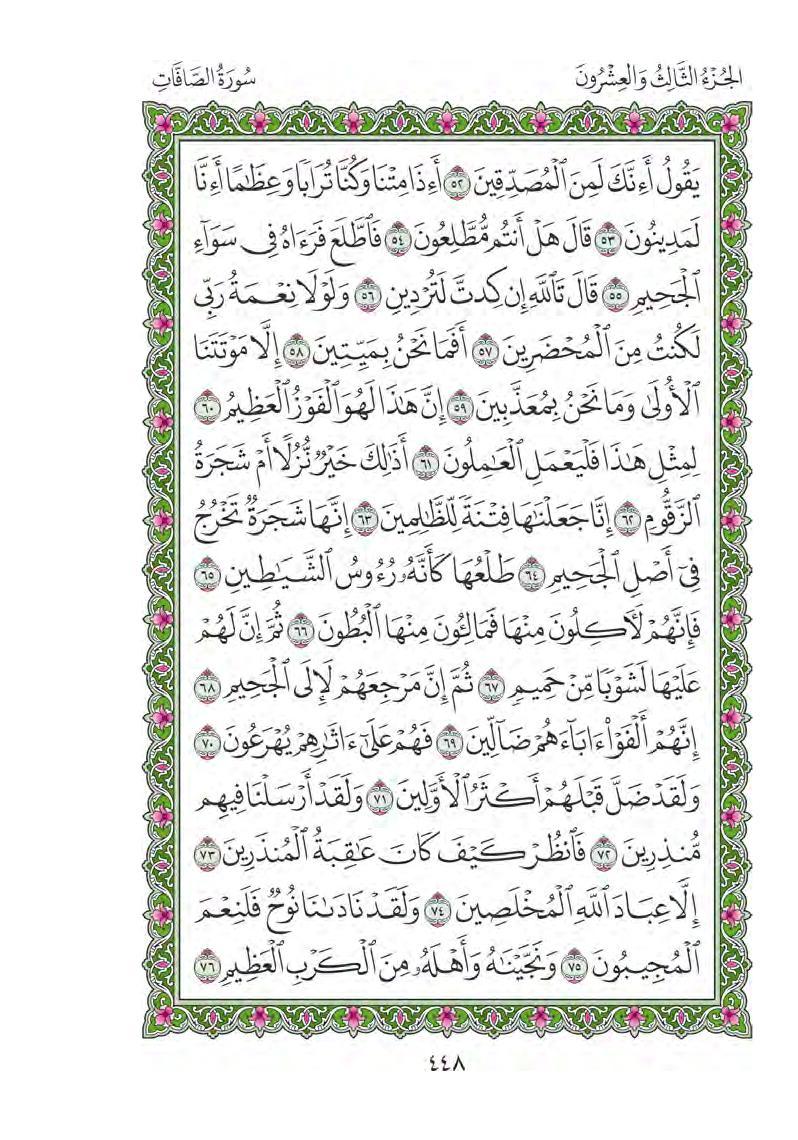 الجُزْءُ الثَّالِثُ وَالعِشْرُونَ
سُورَةُ الصَّافَّاتِ
يَقُولُ أَءِنَّكَ لَمِنَ ٱلْمُصَدِّقِينَ ٥٢ أَءِذَا مِتْنَا وَكُنَّا تُرَابًا وَعِظَٰمًا أَءِنَّا
لَمَدِينُونَ ٥٣ قَالَ هَلْ أَنتُم مُّطَّلِعُونَ ٥٤ فَٱطَّلَعَ فَرَءَاهُ فِى سَوَآءِ
ٱلْجَحِيمِ ٥٥ قَالَ تَٱللَّهِ إِن كِدتَّ لَتُرْدِينِ ٥٦ وَلَوْلَا نِعْمَةُ رَبِّى
لَكُنتُ مِنَ ٱلْمُحْضَرِينَ ٥٧ أَفَمَا نَحْنُ بِمَيِّتِينَ ٥٨ إِلَّا مَوْتَتَنَا
ٱلْأُولَىٰ وَمَا نَحْنُ بِمُعَذَّبِينَ ٥٩ إِنَّ هَٰذَا لَهُوَ ٱلْفَوْزُ ٱلْعَظِيمُ ٦٠
لِمِثْلِ هَٰذَا فَلْيَعْمَلِ ٱلْعَٰمِلُونَ ٦١ أَذَٰلِكَ خَيْرٌ نُّزُلًا أَمْ شَجَرَةُ
ٱلزَّقُّومِ ٦٢ إِنَّا جَعَلْنَٰهَا فِتْنَةً لِّلظَّٰلِمِينَ ٦٣ إِنَّهَا شَجَرَةٌ تَخْرُجُ
فِىٓ أَصْلِ ٱلْجَحِيمِ ٦٤ طَلْعُهَا كَأَنَّهُۥ رُءُوسُ ٱلشَّيَٰطِينِ ٦٥
فَإِنَّهُمْ لَءَاكِلُونَ مِنْهَا فَمَالِـُٔونَ مِنْهَا ٱلْبُطُونَ ٦٦ ثُمَّ إِنَّ لَهُمْ
عَلَيْهَا لَشَوْبًا مِّنْ حَمِيمٍ ٦٧ ثُمَّ إِنَّ مَرْجِعَهُمْ لَإِلَى ٱلْجَحِيمِ ٦٨
إِنَّهُمْ أَلْفَوْا۟ ءَابَآءَهُمْ ضَآلِّينَ ٦٩ فَهُمْ عَلَىٰٓ ءَاثَٰرِهِمْ يُهْرَعُونَ ٧٠
وَلَقَدْ ضَلَّ قَبْلَهُمْ أَكْثَرُ ٱلْأَوَّلِينَ ٧١ وَلَقَدْ أَرْسَلْنَا فِيهِم
مُّنذِرِينَ ٧٢ فَٱنظُرْ كَيْفَ كَانَ عَٰقِبَةُ ٱلْمُنذَرِينَ ٧٣
إِلَّا عِبَادَ ٱللَّهِ ٱلْمُخْلَصِينَ ٧٤ وَلَقَدْ نَادَىٰنَا نُوحٌ فَلَنِعْمَ
ٱلْمُجِيبُونَ ٧٥ وَنَجَّيْنَٰهُ وَأَهْلَهُۥ مِنَ ٱلْكَرْبِ ٱلْعَظِيمِ ٧٦
٤٤٨